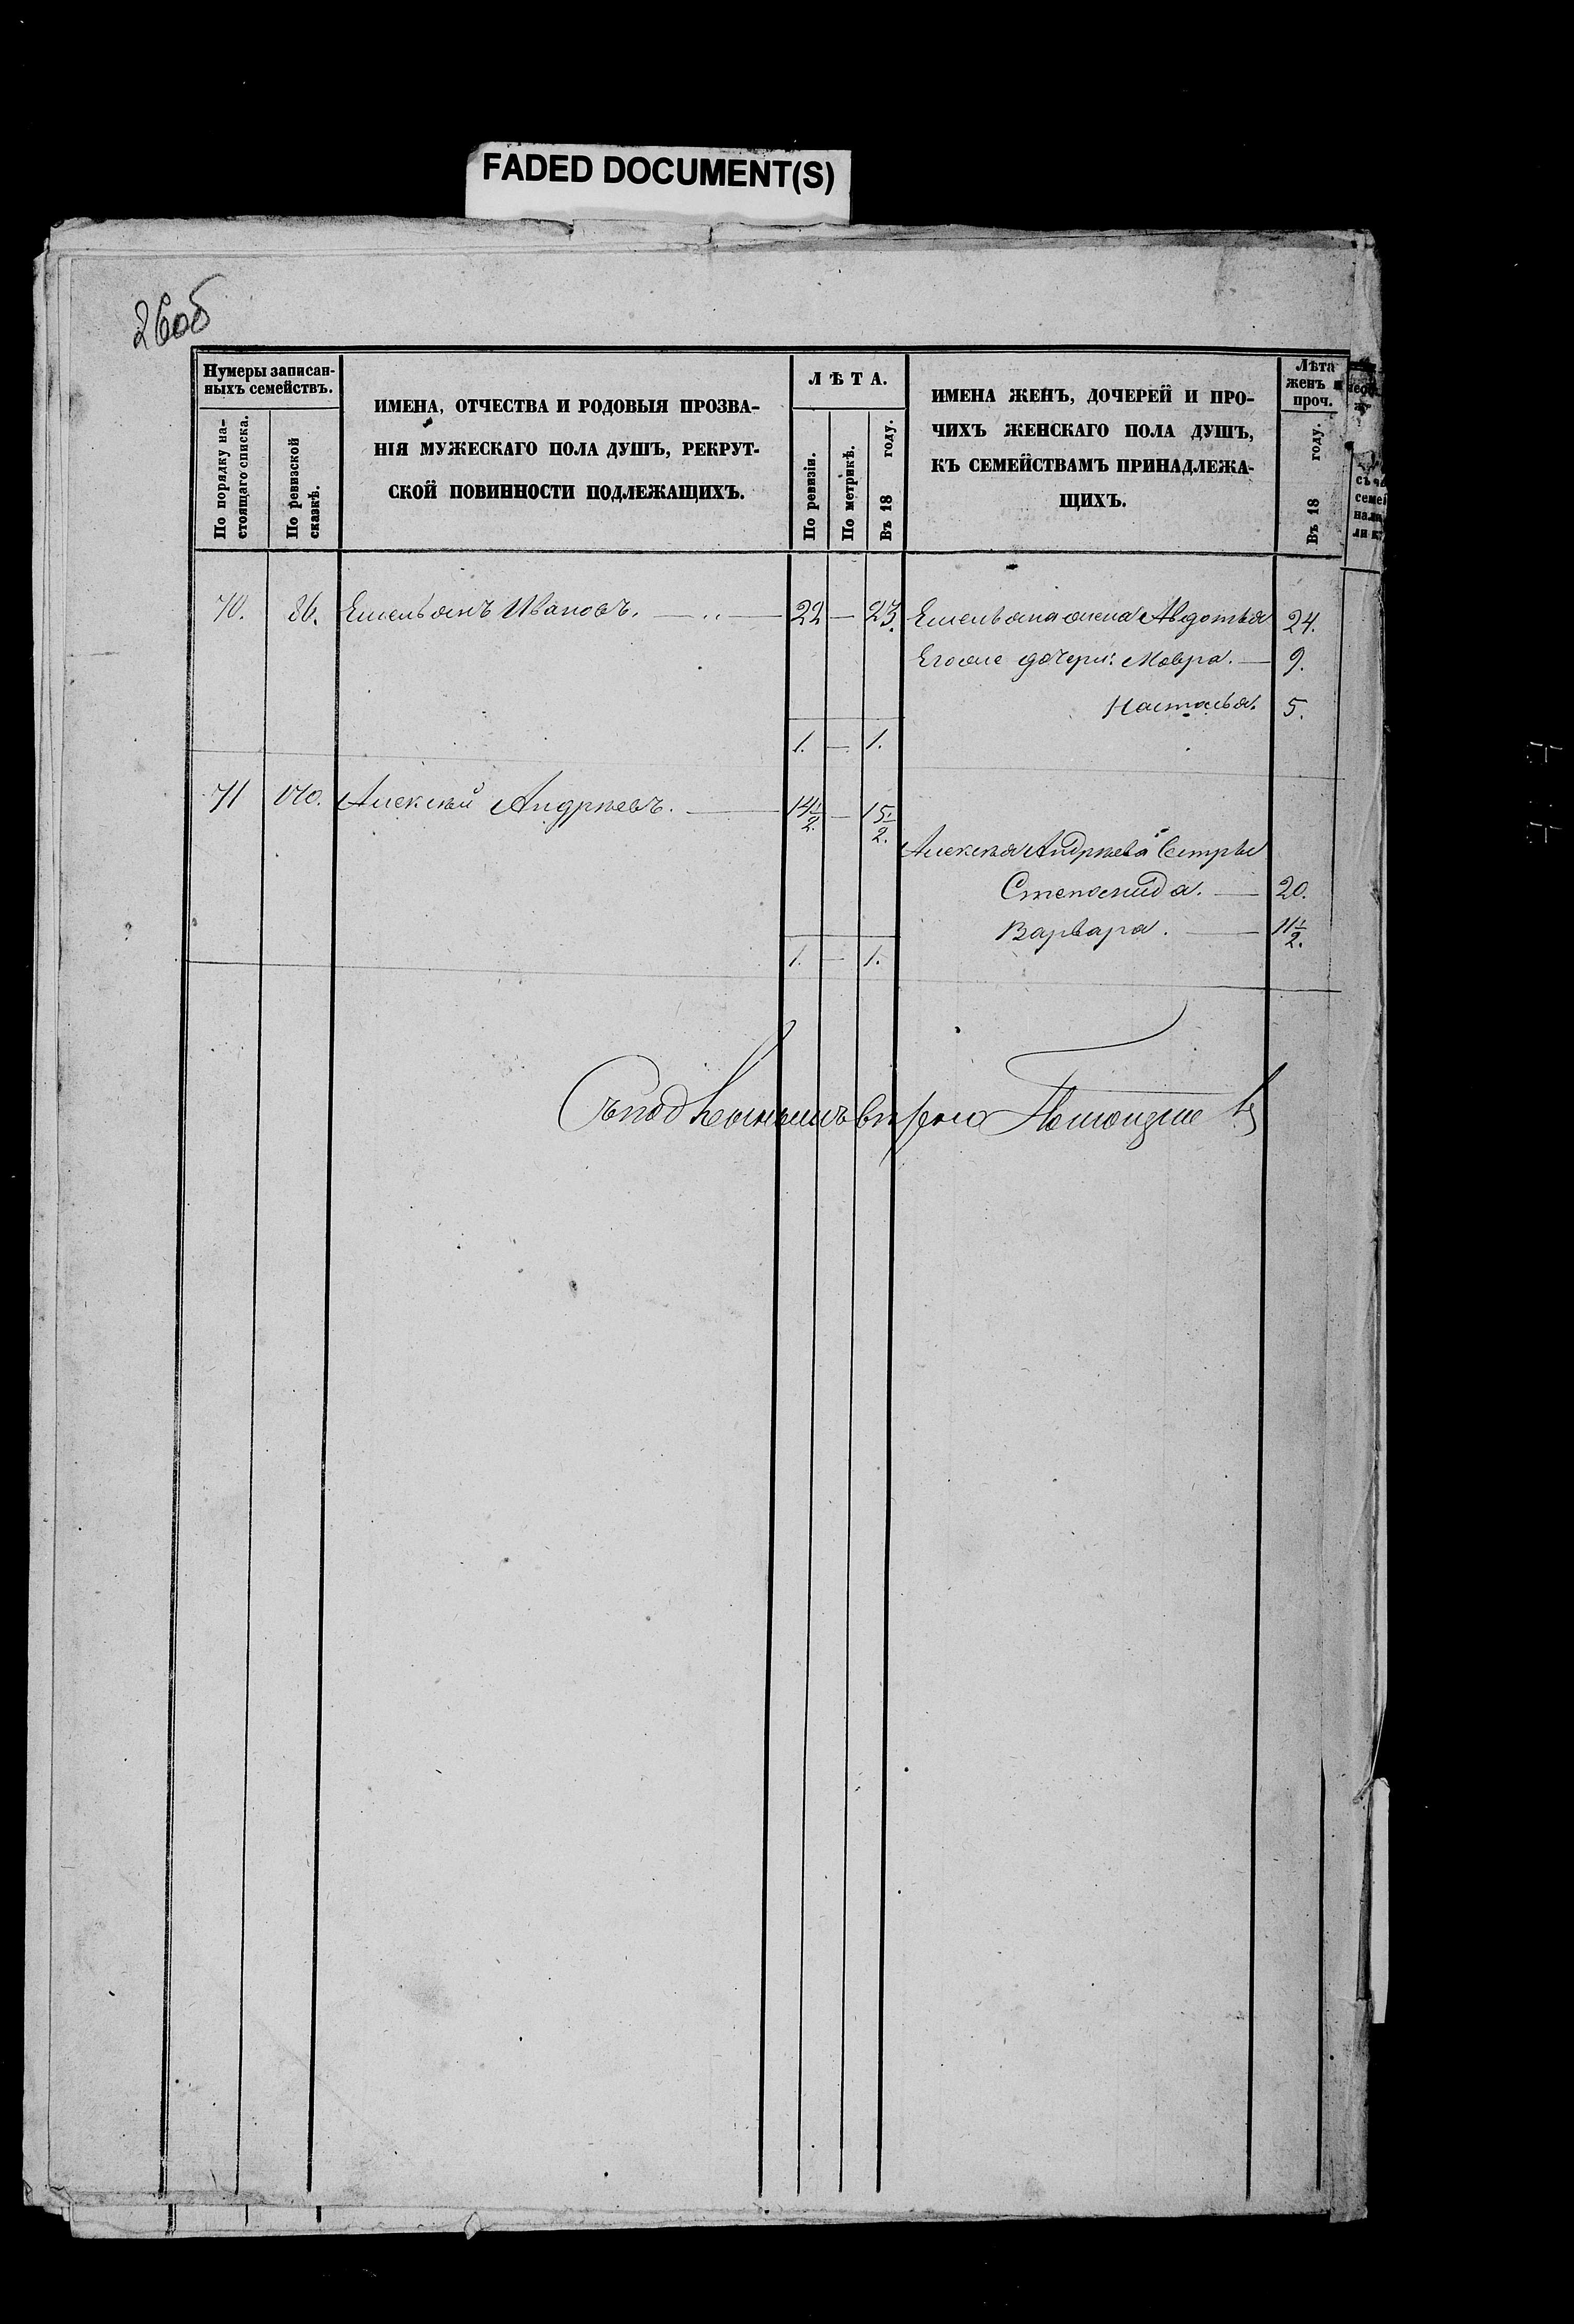 FADED DOCUMENT(S)
26об
Нумеры записан-
ныхъ семействъ.
По порядку на-
стоящаго списка.
По ревизской
сказкѣ.
ИМЕНА, ОТЧЕСТВА И РОДОВЫЯ ПРОЗВА-
НІЯ МУЖЕСКАГО ПОЛА ДУШЪ, РЕКРУТ-
СКОЙ ПОВИННОСТИ ПОДЛЕЖАЩИХЪ.
ЛѢТА.
По ревизіи.
По метрикѣ.
Въ 18 году.
ИМЕНА ЖЕНЪ, ДОЧЕРЕЙ И ПРО-
ЧИХЪ ЖЕНСКАГО ПОЛА ДУШЪ,
КЪ СЕМЕЙСТВАМЪ ПРИНАДЛЕЖА-
ЩИХЪ.
Лѣта
женъ и
проч.
Въ 18 году.
70. 86. Емельянъ Ивановъ. — 22 — 23. Емельяна жена Авдотья 24.
Егоже дочери: Мавра. — 9.
Настасья. 5.
1. — 1.
71 170. Алексѣй Андреевъ. — 14 1/2. — 15 1/2.
Алексѣя Андреева Сестры
Степанида. — 20.
Варвара. — 11 1/2.
1. — 1.
Съ подлиннымъ вѣрно